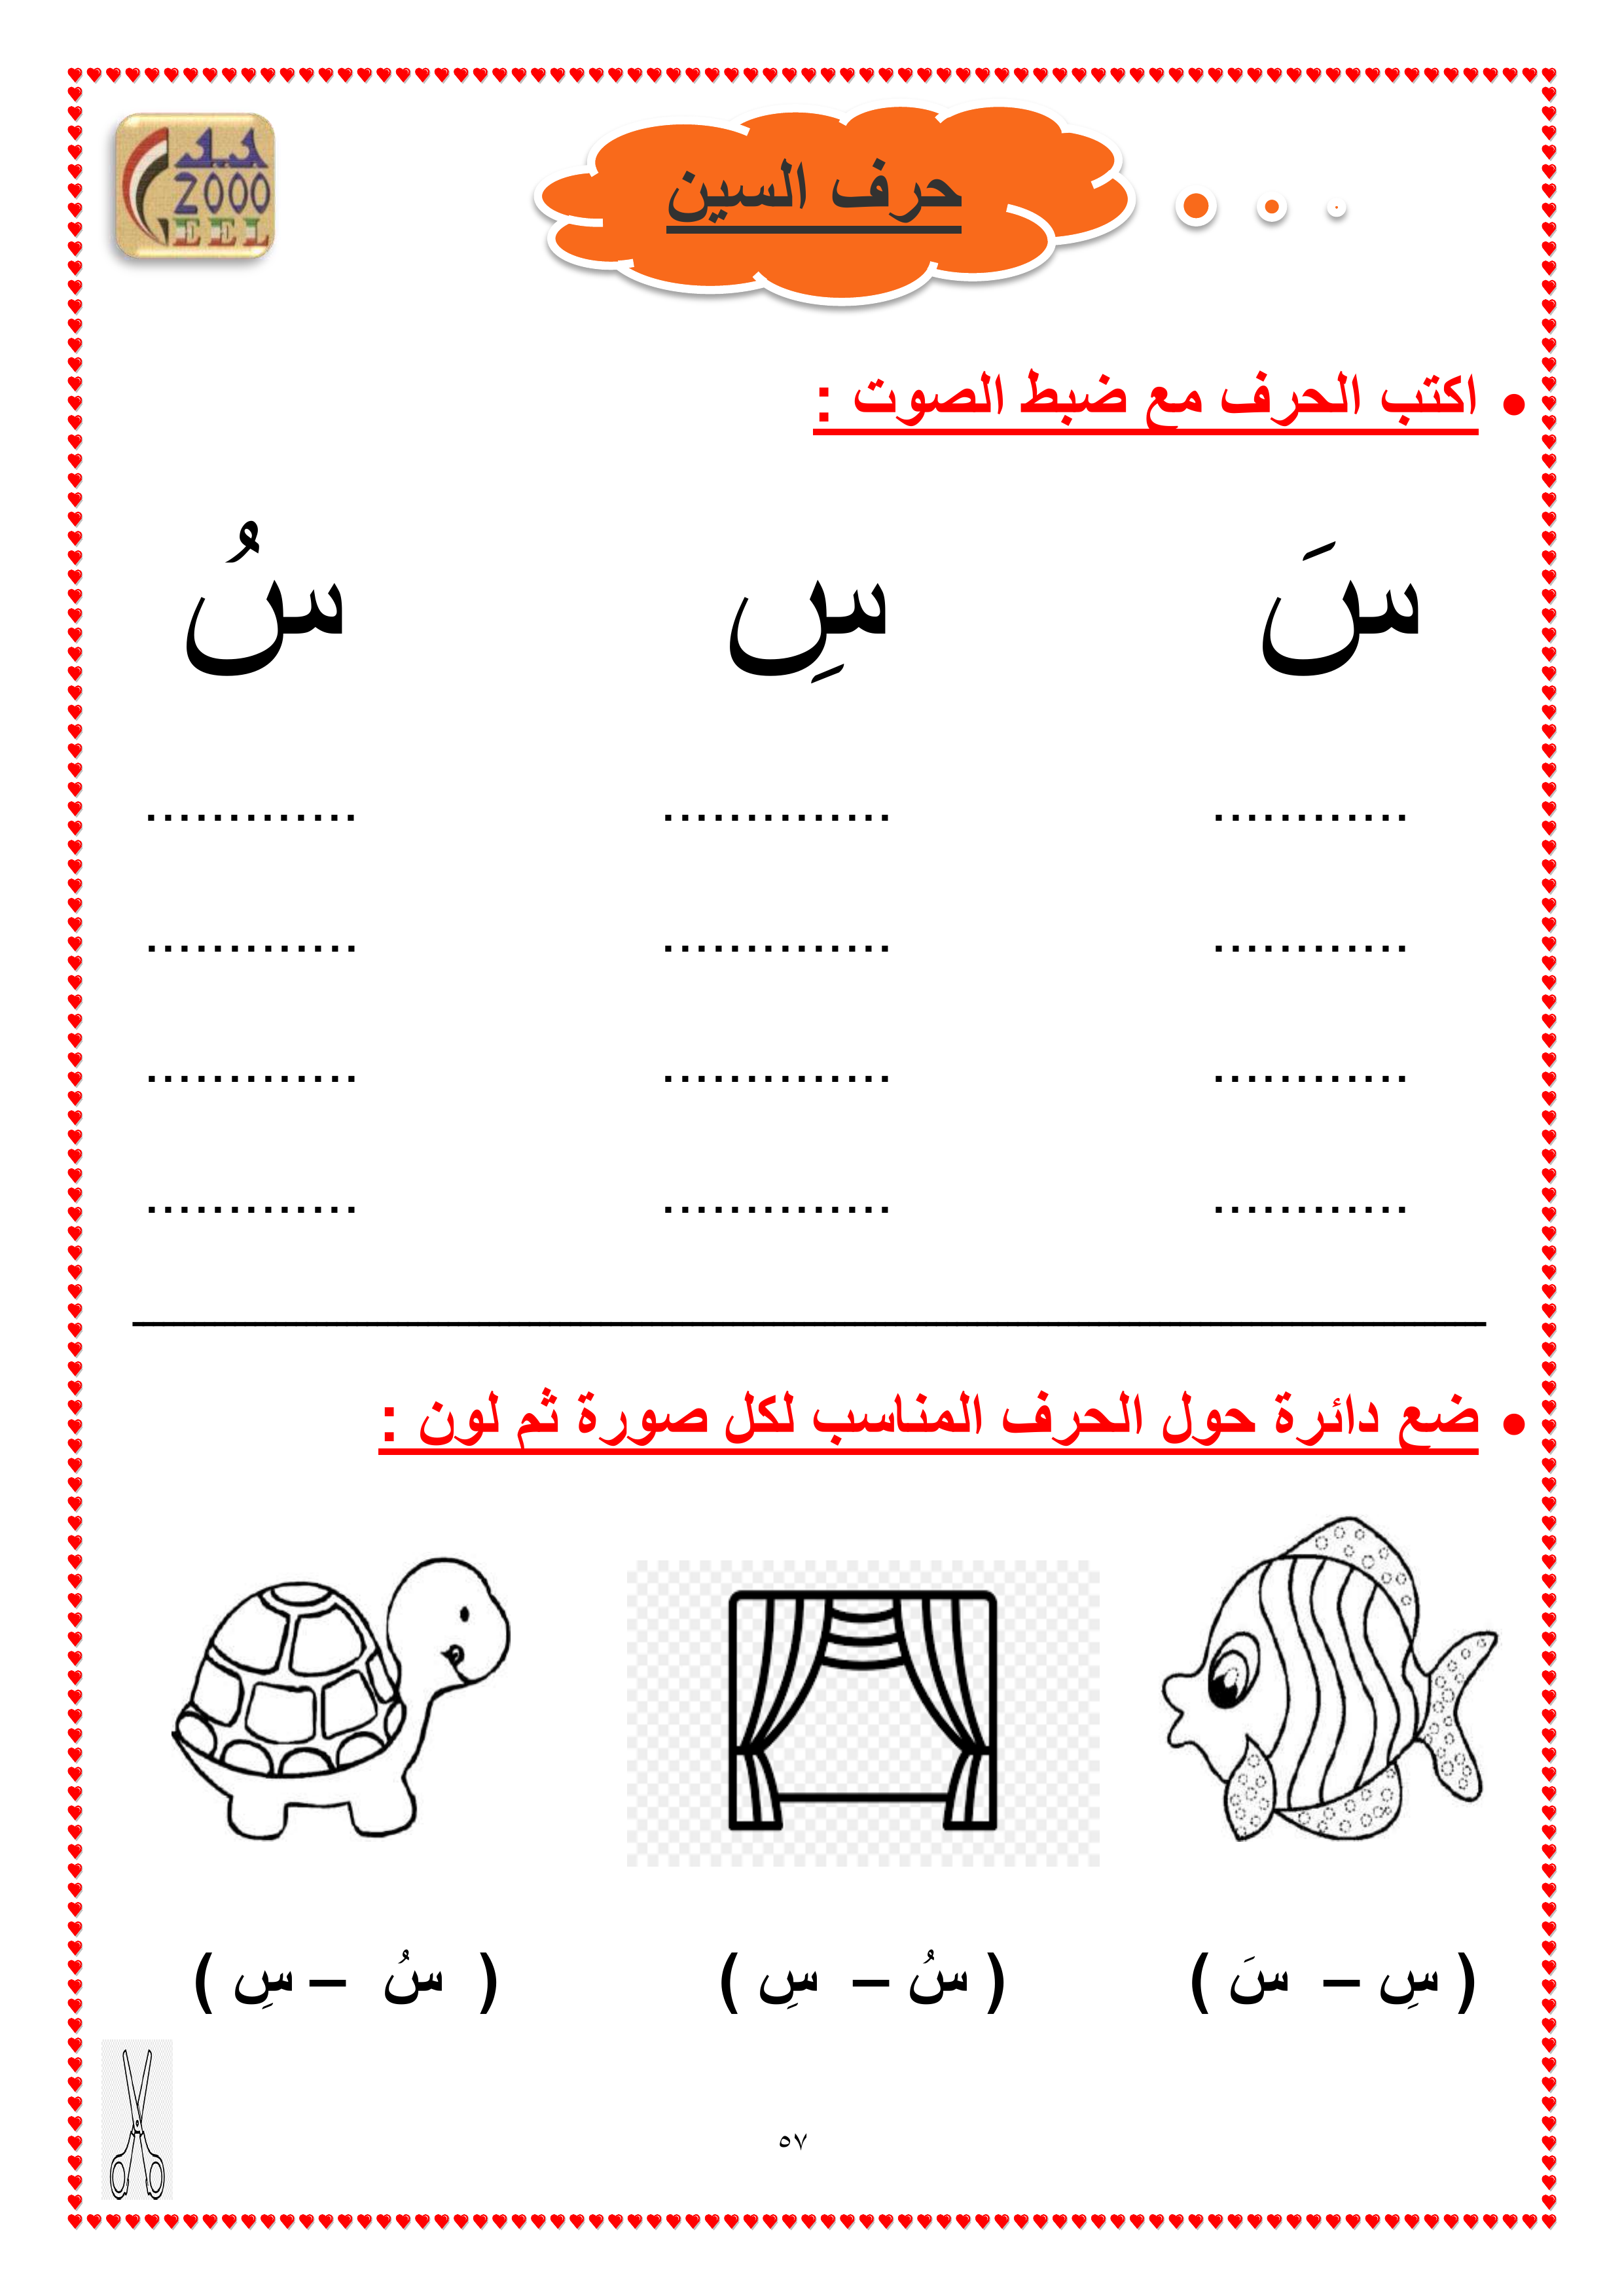 جيل
2000
EEL
حرف السين
• اكتب الحرف مع ضبط الصوت :
سَ سِ سُ
............ .............. .............
............ .............. .............
............ .............. .............
............ .............. .............
• ضع دائرة حول الحرف المناسب لكل صورة ثم لون :
( سِ – سَ ) ( سُ – سِ ) ( سُ – سِ )
٥٧